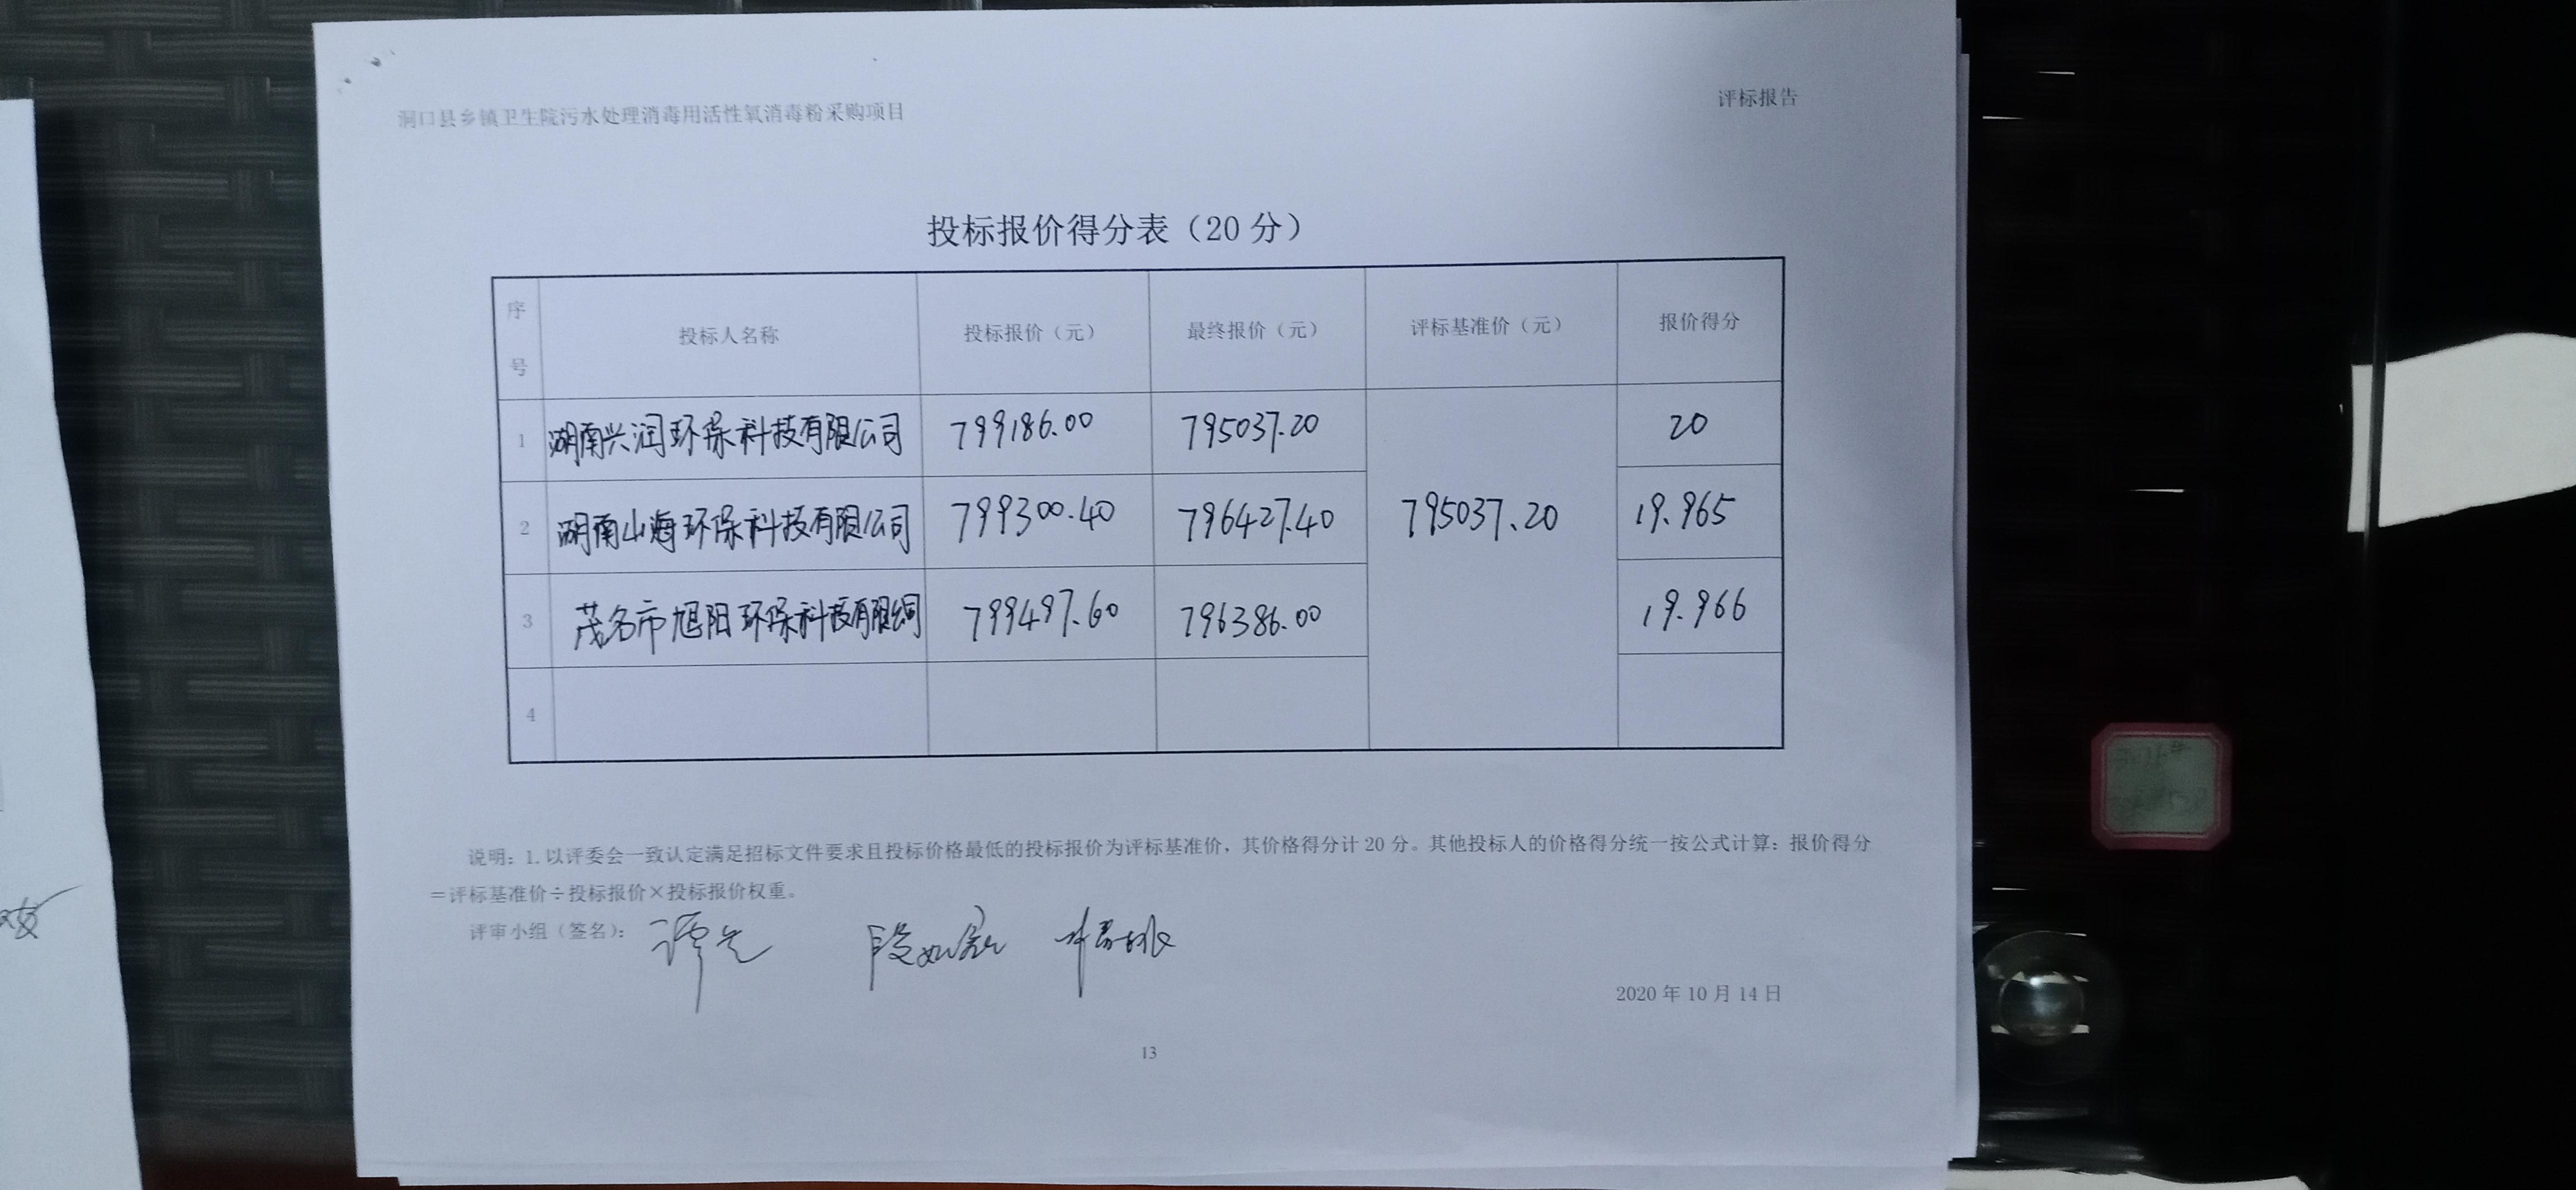 洞口县乡镇卫生院污水处理消毒用活性氧消毒粉采购项目
评标报告
投标报价得分表（20 分）
序号 投标人名称 投标报价（元） 最终报价（元） 评标基准价（元） 报价得分
1 湖南兴润环保科技有限公司 799186.00 795037.20 20
2 湖南山海环保科技有限公司 799300.40 796427.40 795037.20 19.965
3 茂名市旭阳环保科技有限公司 799497.60 796386.00 19.966
4
说明：1. 以评委会一致认定满足招标文件要求且投标价格最低的投标报价为评标基准价，其价格得分计 20 分。其他投标人的价格得分统一按公式计算：报价得分
＝评标基准价÷投标报价×投标报价权重。
评审小组（签名）：
2020 年 10 月 14 日
13